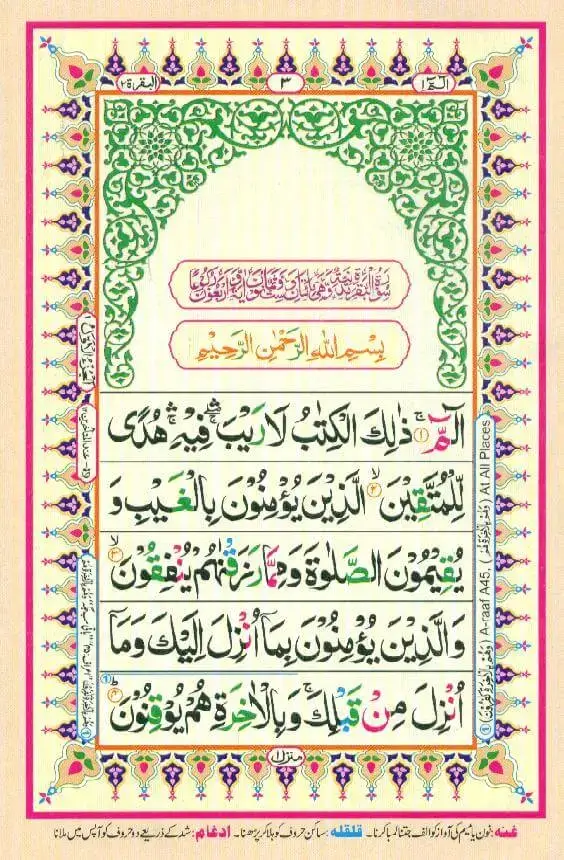 الٓمّٓ ١
٣
البقرة ٢
سُوْرَةُ الْبَقَرَةِ مَدَنِيَّةٌ وَّهِيَ مِائَتَانِ وَسِتٌّ وَّثَمَانُوْنَ اٰيَةً وَّاَرْبَعُوْنَ رُكُوْعًا
بِسْمِ اللّٰهِ الرَّحْمٰنِ الرَّحِيْمِ
الٓمّٓ ۚ﴿۱﴾ ذٰلِكَ الْكِتٰبُ لَا رَيْبَ ۛۖ فِيْهِ ۛۚ هُدًى
لِّلْمُتَّقِيْنَ ۙ﴿۲﴾ الَّذِيْنَ يُؤْمِنُوْنَ بِالْغَيْبِ وَ
يُقِيْمُوْنَ الصَّلٰوةَ وَمِمَّا رَزَقْنٰهُمْ يُنْفِقُوْنَ ۙ﴿۳﴾
وَالَّذِيْنَ يُؤْمِنُوْنَ بِمَاۤ اُنْزِلَ اِلَيْكَ وَمَاۤ
اُنْزِلَ مِنْ قَبْلِكَ ۚ وَبِالْاٰخِرَةِ هُمْ يُوْقِنُوْنَ ؕ﴿۴﴾
منزل ١
At All Places
A-raaf A45.
غنہ: نون یا میم کی آواز کو الف جتنا لمبا کرنا۔ قلقلہ: ساکن حروف کو ہلا کر پڑھنا۔ ادغام: شد کے ذریعے دو حروف کو آپس میں ملانا